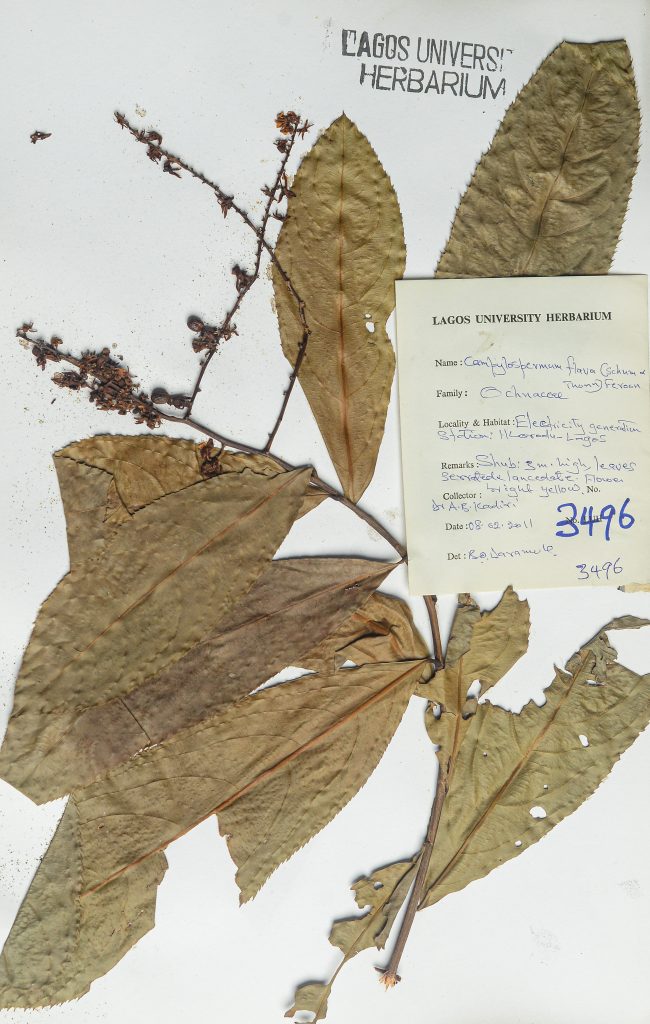 LAGOS UNIVERSIT
HERBARIUM
LAGOS UNIVERSITY HERBARIUM
Name: Campylospermum flava (Schum &
Thonn) Feroen
Family: Ochnaceae
Locality & Habitat: Electricity generation
Station: Ikorodu-Lagos
Remarks: Shub: 3m high, leaves
serratede lanceolate. Flower
bright yellow.
Collector: No.
Dr A.B. Kadiri
3496
Date: 08.02.2011
Det:
3496